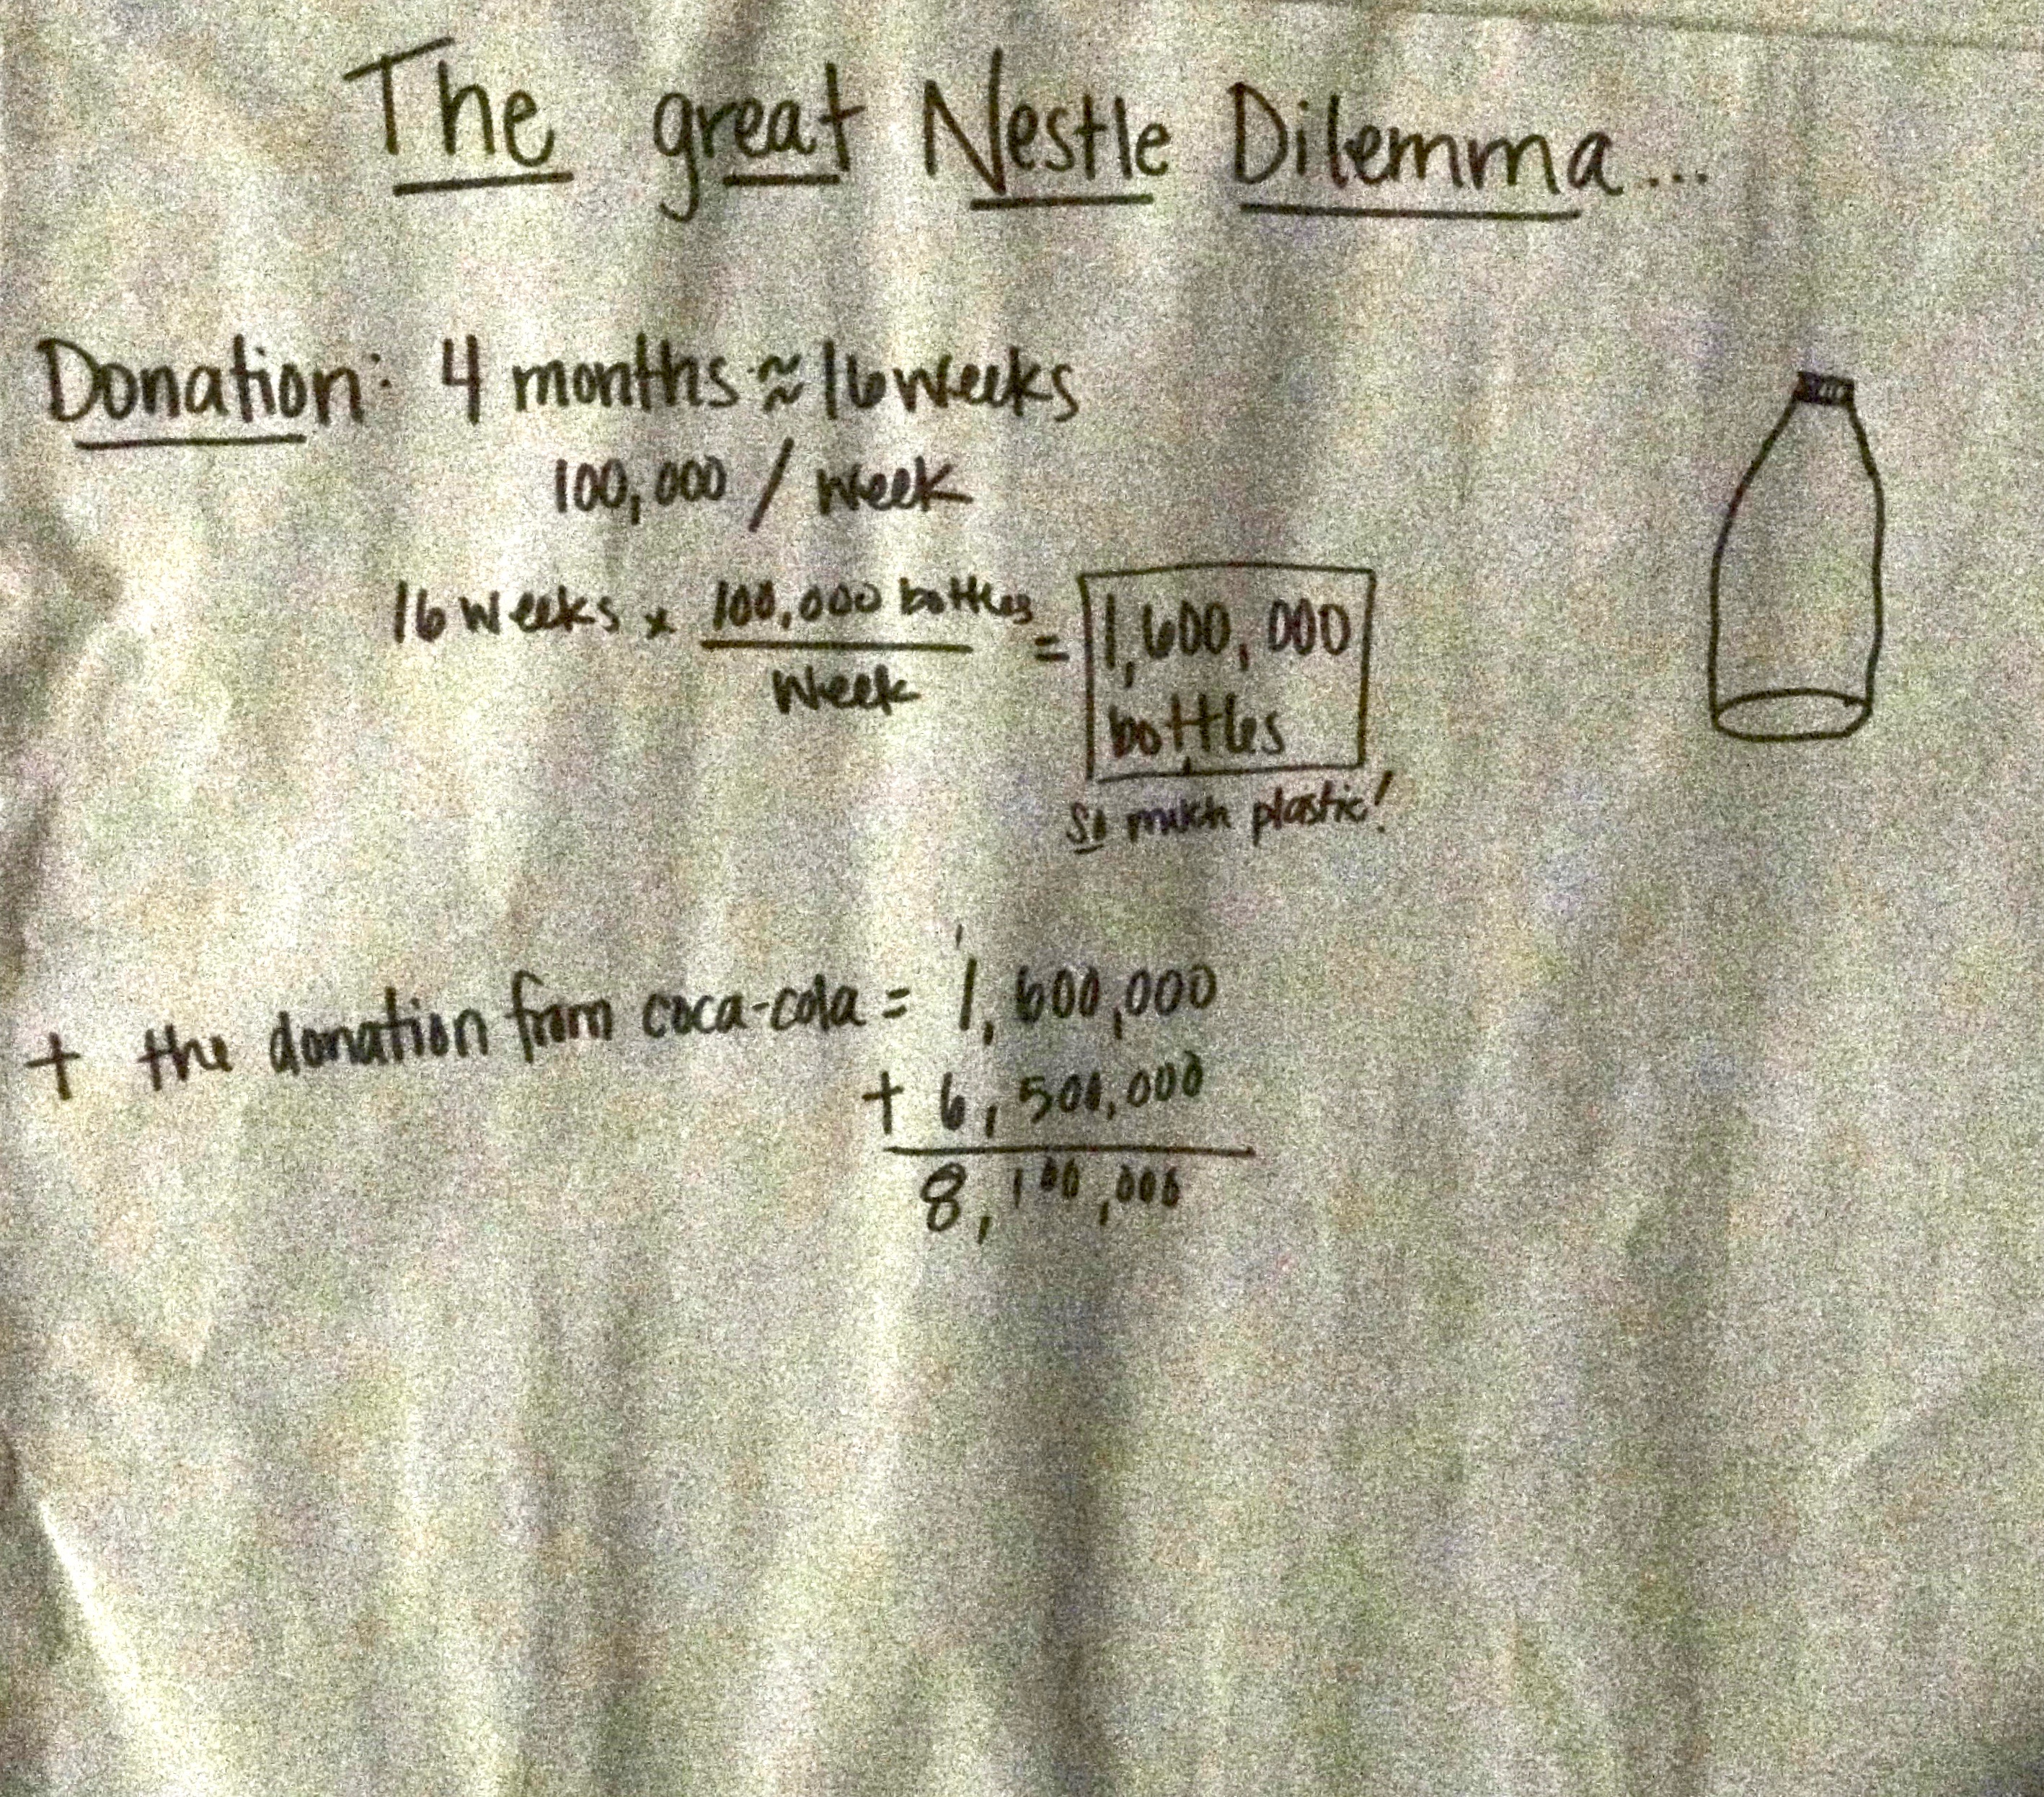 The great Nestle Dilemma...
Donation: 4 months ≈ 16 weeks
100,000 / week
16 weeks x 100,000 bottles
week
= 1,600,000
bottles
So much plastic!
1
+ the donation from coca-cola = 1,600,000
+ 6,500,000
8,100,000